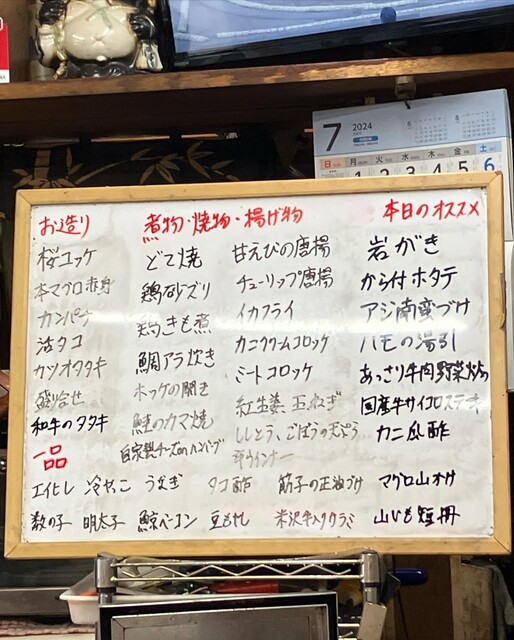 7 2024
日 月 火 水 木 金 土
1 2 3 4 5 6
お造り
桜ユッケ
本マグロ赤身
カンパチ
活タコ
カツオタタキ
盛り合せ
和牛のタタキ
煮物・焼物・揚げ物
どて焼
鶏砂ズリ
鶏きも煮
鯛アラ炊き
ホッケの開き
鮭のカマ焼
自家製チーズinハンバーグ
甘えびの唐揚
チューリップ唐揚
イカフライ
カニクリームコロッケ
ミートコロッケ
紅生姜 玉ねぎ
ししとう、ごぼうの天ぷら
ウインナー
本日のオススメ
岩がき
から付ホタテ
アジ南蛮づけ
ハモの湯引
あっさり牛肉野菜炒め
国産牛サイコロステーキ
カニ瓜酢
一品
エイヒレ 冷やっこ うなぎ タコ酢 筋子の正油づけ マグロ山かけ
数の子 明太子 鯨ベーコン 豆もやし 米沢牛入りクラミ 山いも短冊